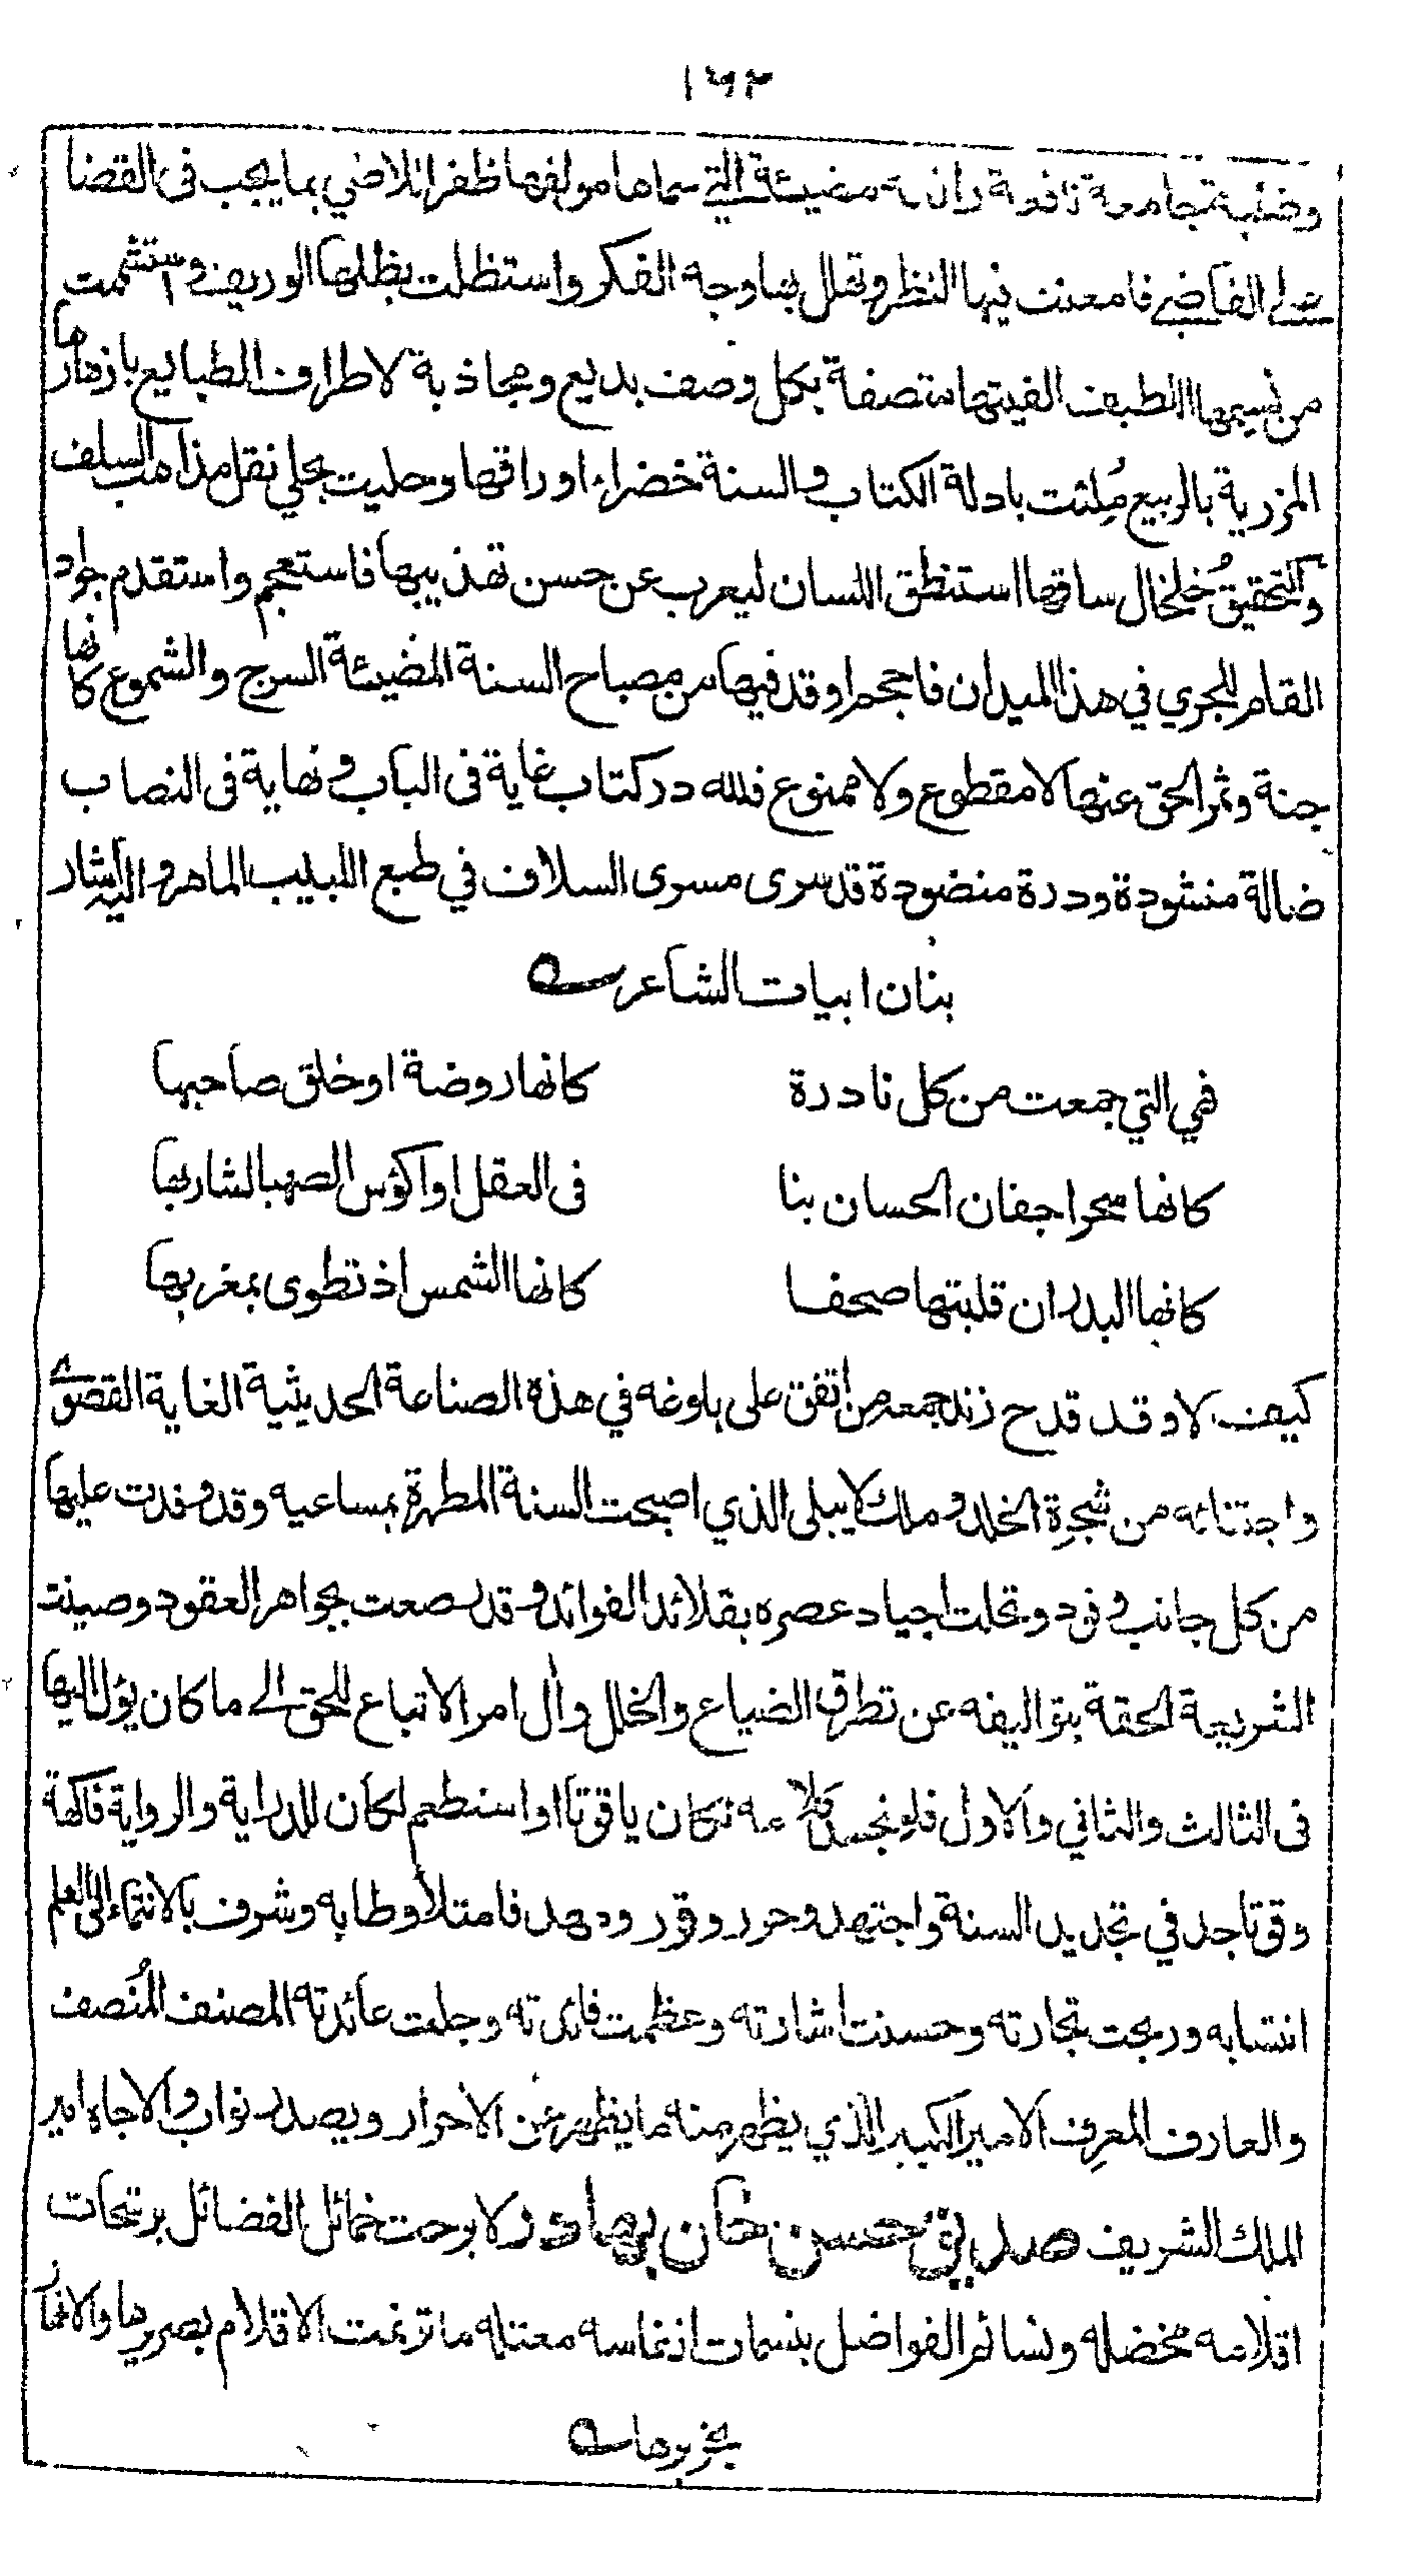 ١٦٢
نافعة مضيئة التي سماها مولفها ظفر اللاضي بما يجب في القضا
على القاضي فامعنت فيها النظر وتهلل بها وجه الفكر واستظلت بظلها الوريف واستشممت
من نسيمها اللطيف الفيتها متصفة بكل وصف بديع ومجاذبة لاطراف الطبايع بازهارها
المزرية بالربيع مُلئت بادلة الكتاب والسنة خضراء اوراقها وحليت بحلي نقل مذاهب السلف
والتحقيق خلخال ساقها استنطق اللسان ليعرب عن حسن تهذيبها فاستعجم واستقدم جواد
القلم للجري في هذا الميدان فاحجم اوقد فيها من مصباح السنة المضيئة السرج والشموع كانها
جنة وثمر الحق عنها لا مقطوع ولا ممنوع فلله در كتاب غاية في الباب ونهاية في النصاب
ضالة منشودة ودرة منضودة قد سرى مسرى السلاف في طبع اللبيب الماهر واليه اشار
بنان ابيات الشاعر
هي التي جمعت من كل نادرة كانها روضة او خلق صاحبها
كانها سحر اجفان الحسان بنا في العقل او اكؤس الصهبا لشاربها
كانها البدر ان قلبتها صحفا كانها الشمس اذ تطوى بمغربها
كيف لا وقد قدح زند جمعه من اتفق على بلوغه في هذه الصناعة الحديثية الغاية القصوى
واجتنائه من شجرة الخلد وملك لا يبلى الذي اصبحت السنة المطهرة بمساعيه وقد وفدت عليها
من كل جانب وفود وتحلت اجياد عصره بقلائد الفوائد وقد رصعت بجواهر العقود وصينت
الشريعة الحقة بتواليفه عن تطرق الضياع والخلل وآل امر الاتباع للحق الى ما كان يؤل اليها
في الثالث والثاني والاول فلو تجسد كلامه لكان ياقوتا او استطعم لكان للدراية والرواية فاكهة
وقوتا جد في تجديد السنة واجتهد وحرر وقرر ومهد فامتلأ وطابه وشرف بالانتماء الى العلم
انتسابه وربحت تجارته وحسنت اشارته وعظمت فائدته وجلت عائدته المصنف المُنصف
والعارف المعرف الامير الكبير الذي يظهر منه ما يظهر عن الاحرار ويصدر نواب والاجاه امير
الملك الشريف صديق حسن خان بهادر لا برحت خمائل الفضائل برشحات
اقلامه مخضله ونسائم الفواضل بنسمات انفاسه معتله ما ترنمت الاقلام بصريرها والانهار
بخريرها